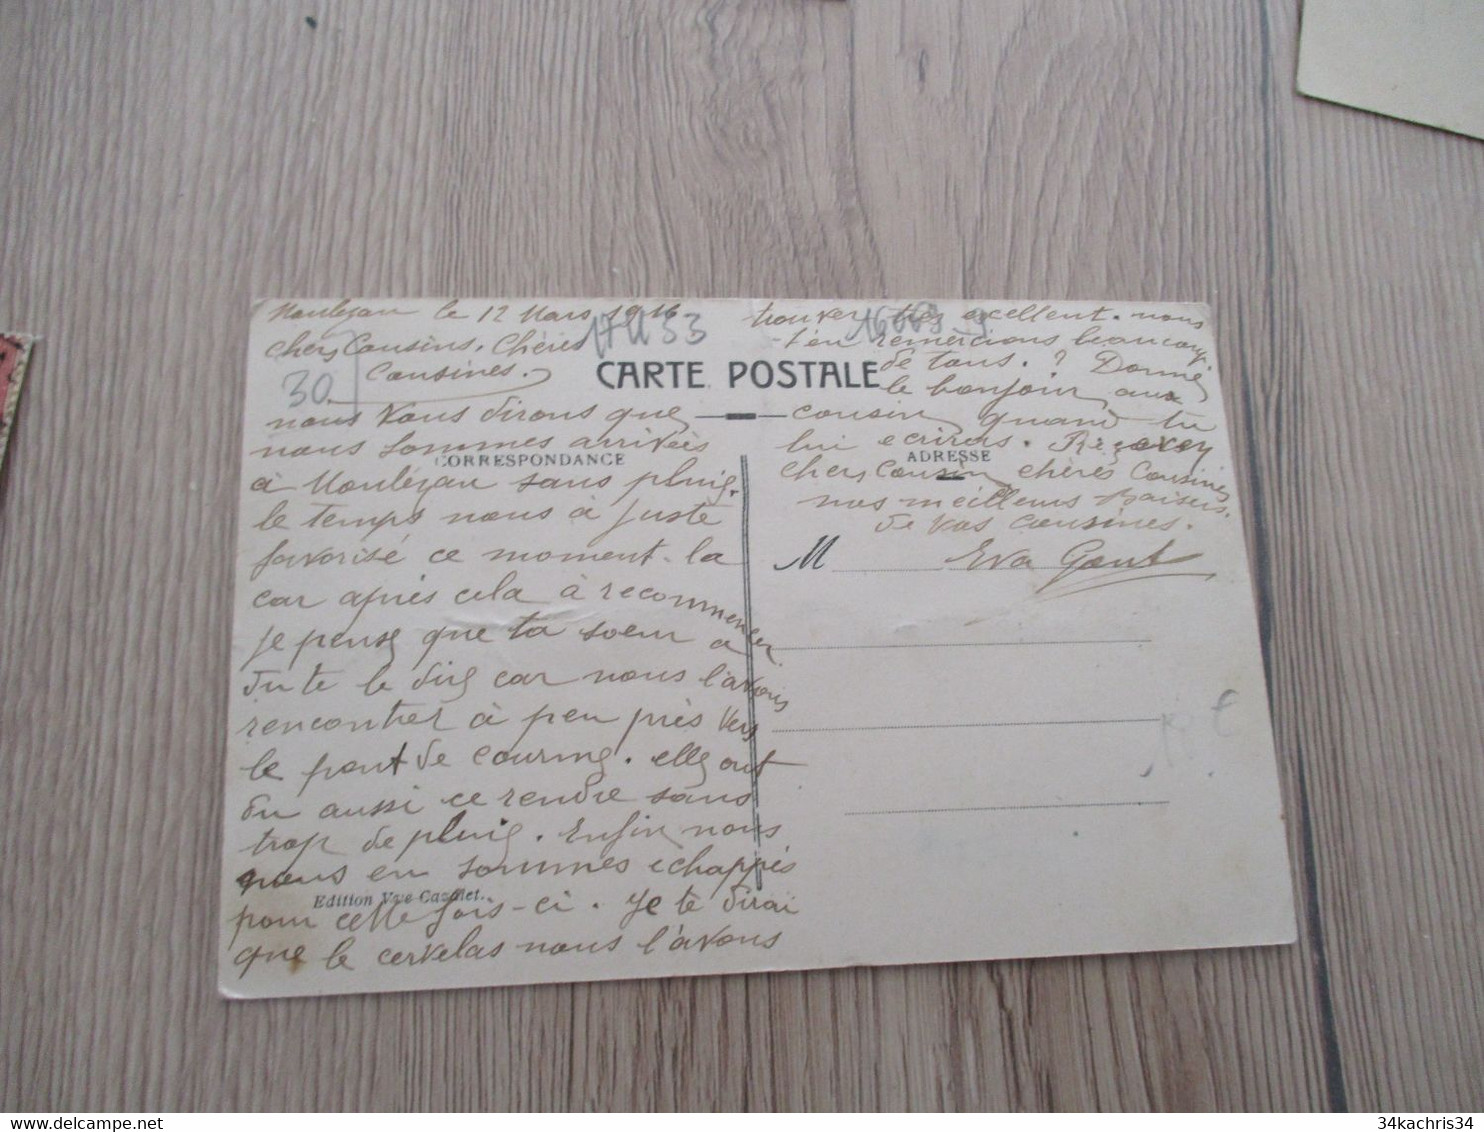 Moulézan le 12 Mars 1916
17 U 53
chers Cousins. Chères
Cousines.
30
CARTE POSTALE
nous vous dirons que
nous sommes arrivées
CORRESPONDANCE
à Moulézan sans pluie.
le temps nous a juste
favorisé ce moment. la
car après cela à recommencer
je pense que ta soeur a
du te le dire car nous l'avons
rencontrer à peu près vers
le pont de courme. elle ont
du aussi ce rendre sans
trop de pluie. Enfin nous
nous en sommes echappés
Edition Vve Cazalet.
pour cette fois-ci. Je te dirai
que le cervelas nous l'avons
trouver très excellent. nous
t'en remercions beaucoup
de tous. Donne
le bonjour aux
cousin quand tu
lui ecriras. Recever
ADRESSE
chers Cousin chères Cousines
nos meilleurs baisers.
de vos cousines.
M Eva Gout
34kachris34